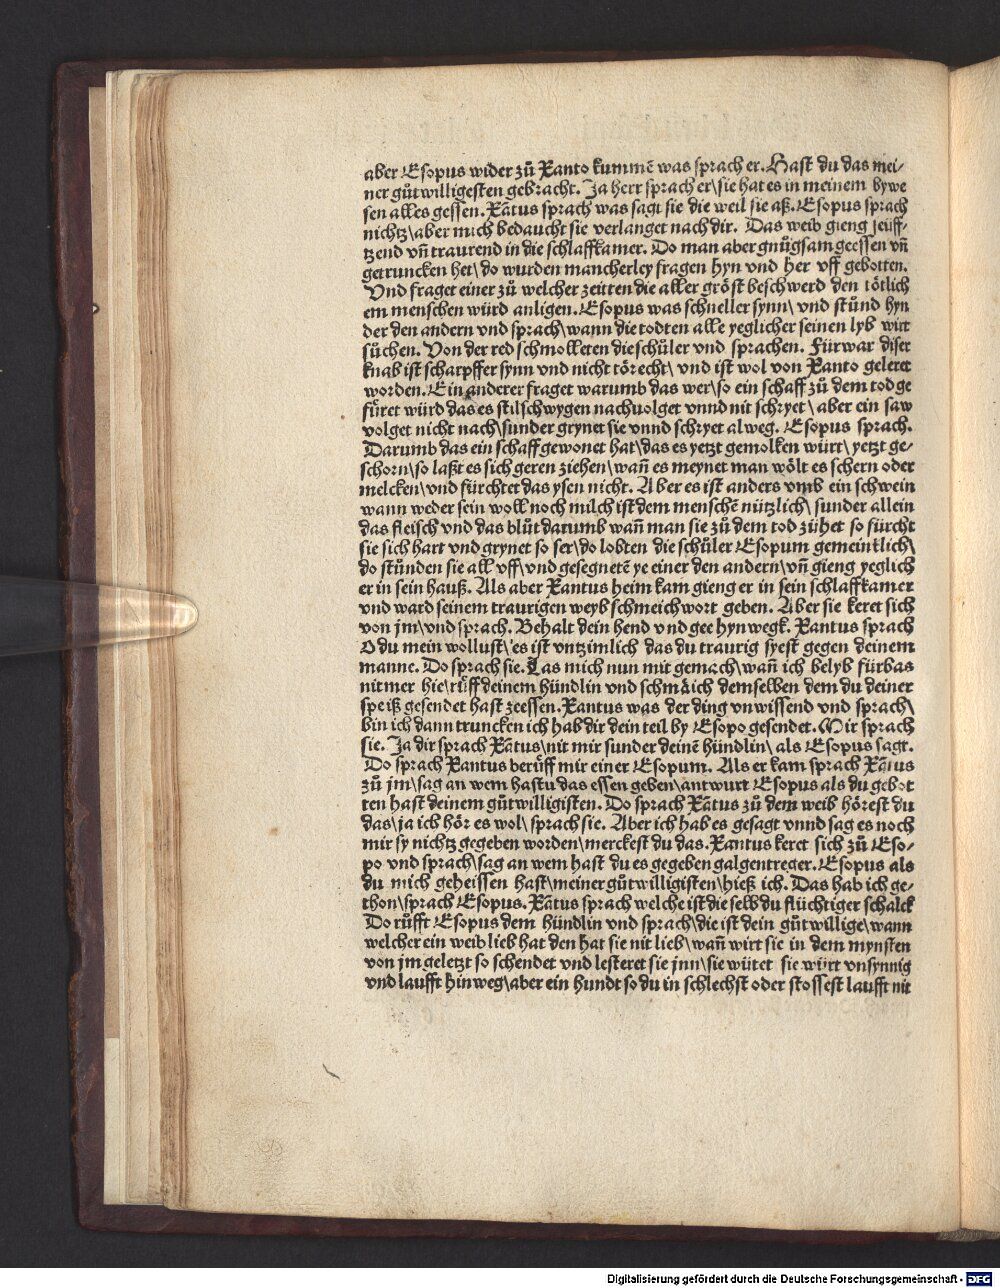 aber Esopus wider zů Xanto kummē was sprach er. Hast du das mei-
ner gůtwilligesten gebracht. Ja herr sprach er\sie hat es in meinem bywe
sen alles gessen. Xātus sprach was sagt sie die weil sie aß. Esopus sprach
nichtz\aber mich bedaucht sie verlanget nach dir. Das weib gieng seuff-
tzend vn̄ traurend in die schlaffkamer. Do man aber gnůgsam geessen vn̄
getruncken het\do wurden mancherley fragen hyn vnd her vff gebotten.
Vnd fraget einer zů welcher zeitten die aller gröst beschwerd den tötlich
em menschen würd anligen. Esopus was schneller synn\vnd stůnd hyn
der den andern vnd sprach\wann die todten alle yeglicher seinen lyb wirt
sůchen. Von der red schmolleten die schüler vnd sprachen. Fürwar diser
knab ist scharpffer synn vnd nicht törecht\vnd ist wol von Xanto geleret
worden. Ein anderer fraget warumb das wer\so ein schaff zů dem tod ge
fůret würd das es stilschwygen nachuolget vnnd nit schryet\aber ein saw
volget nicht nach\sunder grynet sie vnnd schryet alweg. Esopus sprach.
Darumb das ein schaff gewonet hat\das es yetzt gemolken würt\yetzt ge-
schorn\so laßt es sich geren ziehen\wan̄ es meynet man wölt es schern oder
melcken\vnd fürchtet das ysen nicht. Aber es ist anders vmb ein schwein
wann weder sein woll noch milch ist dem menschē nützlich\sunder allein
das fleisch vnd das blůt darumb wan̄ man sie zů dem tod zühet so fürcht
sie sich hart vnd grynet so ser\do lobten die schüler Esopum gemeinklich\
do stůnden sie all vff\vnd gesegnetē ye einer den andern\vn̄ gieng yeglich
er in sein hauß. Als aber Xantus heim kam gieng er in sein schlaffkamer
vnd ward seinem traurigen weyb schmeichwort geben. Aber sie keret sich
von jm\vnd sprach. Behalt dein hend vnd gee hyn wegk. Xantus sprach
O du mein wollust\es ist vntzimlich das du traurig syest gegen deinem
manne. Do sprach sie. Las mich nun mit gemach\wan̄ ich belyb fürbas
nit mer hie\růff deinem hündlin vnd schmäich demselben dem du deiner
speiß gesendet hast zeessen. Xantus was der ding vnwissend vnd sprach\
bin ich dann truncken ich hab dir dein teil by Esopo gesendet. Mir sprach
sie. Ja dir sprach Xātus\nit mir sunder deinē hündlin\als Esopus sagt.
Do sprach Xantus berůff mir einer Esopum. Als er kam sprach Xātus
zů jm\sag an wem hastu das essen geben\antwurt Esopus als du gebot
ten hast deinem gůtwilligisten. Do sprach Xātus zů dem weib hörest du
das\ja ich hör es wol\sprach sie. Aber ich hab es gesagt vnnd sag es noch
mir sy nichtz gegeben worden\merckest du das. Xantus keret sich zů Eso-
po vnd sprach\sag an wem hast du es gegeben galgentreger. Esopus als
du mich geheissen hast\meiner gůtwilligisten\hieß ich. Das hab ich ge-
thon\sprach Esopus. Xātus sprach welche ist die selb du flüchtiger schalck
Do růfft Esopus dem hündlin vnd sprach\die ist dein gůtwillige\wann
welcher ein weib lieb hat den hat sie nit lieb\wan̄ wirt sie in dem mynsten
von jm geletzt so schendet vnd lesteret sie jnn\sie wütet sie würt vnsynnig
vnd laufft hinweg\aber ein hundt so du in schlechst oder stossest laufft nit
Digitalisierung gefördert durch die Deutsche Forschungsgemeinschaft - DFG